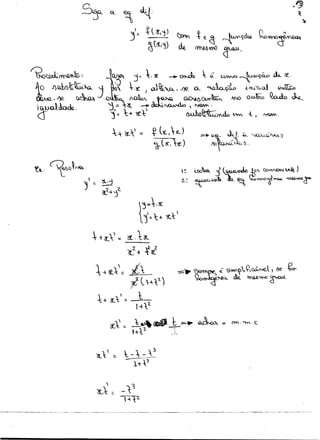 Seja a eq dif:
y' = f(x,y) / g(x,y) com f e g funções homogêneas
de mesmo grau.
Procedimento: fazer y = t.x → onde t é uma função de x.
Ao substituir y por t.x, altera-se a relação inicial então
deve-se achar outro valor para acrescentar no outro lado da
igualdade. y = tx → derivando, vem:
y' = t + xt'
substituindo em 1, vem
t + xt' = f(x,tx) / g(x,tx) eq. dif. de variáveis
separáveis.
Ex: Resolva
y' = x.y / x² + y²
1:
2:
y = t.x
y' = t + xt'
t + xt' = x.tx / x² + t²x²
t + xt' = x²t / x²(1+t²) → sempre é simplificável, se for
homogênea de mesmo grau
t + xt' = t / 1+t²
xt' = t / 1+t² - t → achar o m.m.c
xt' = t - t - t³ / 1+t²
xt' = -t³ / 1+t²